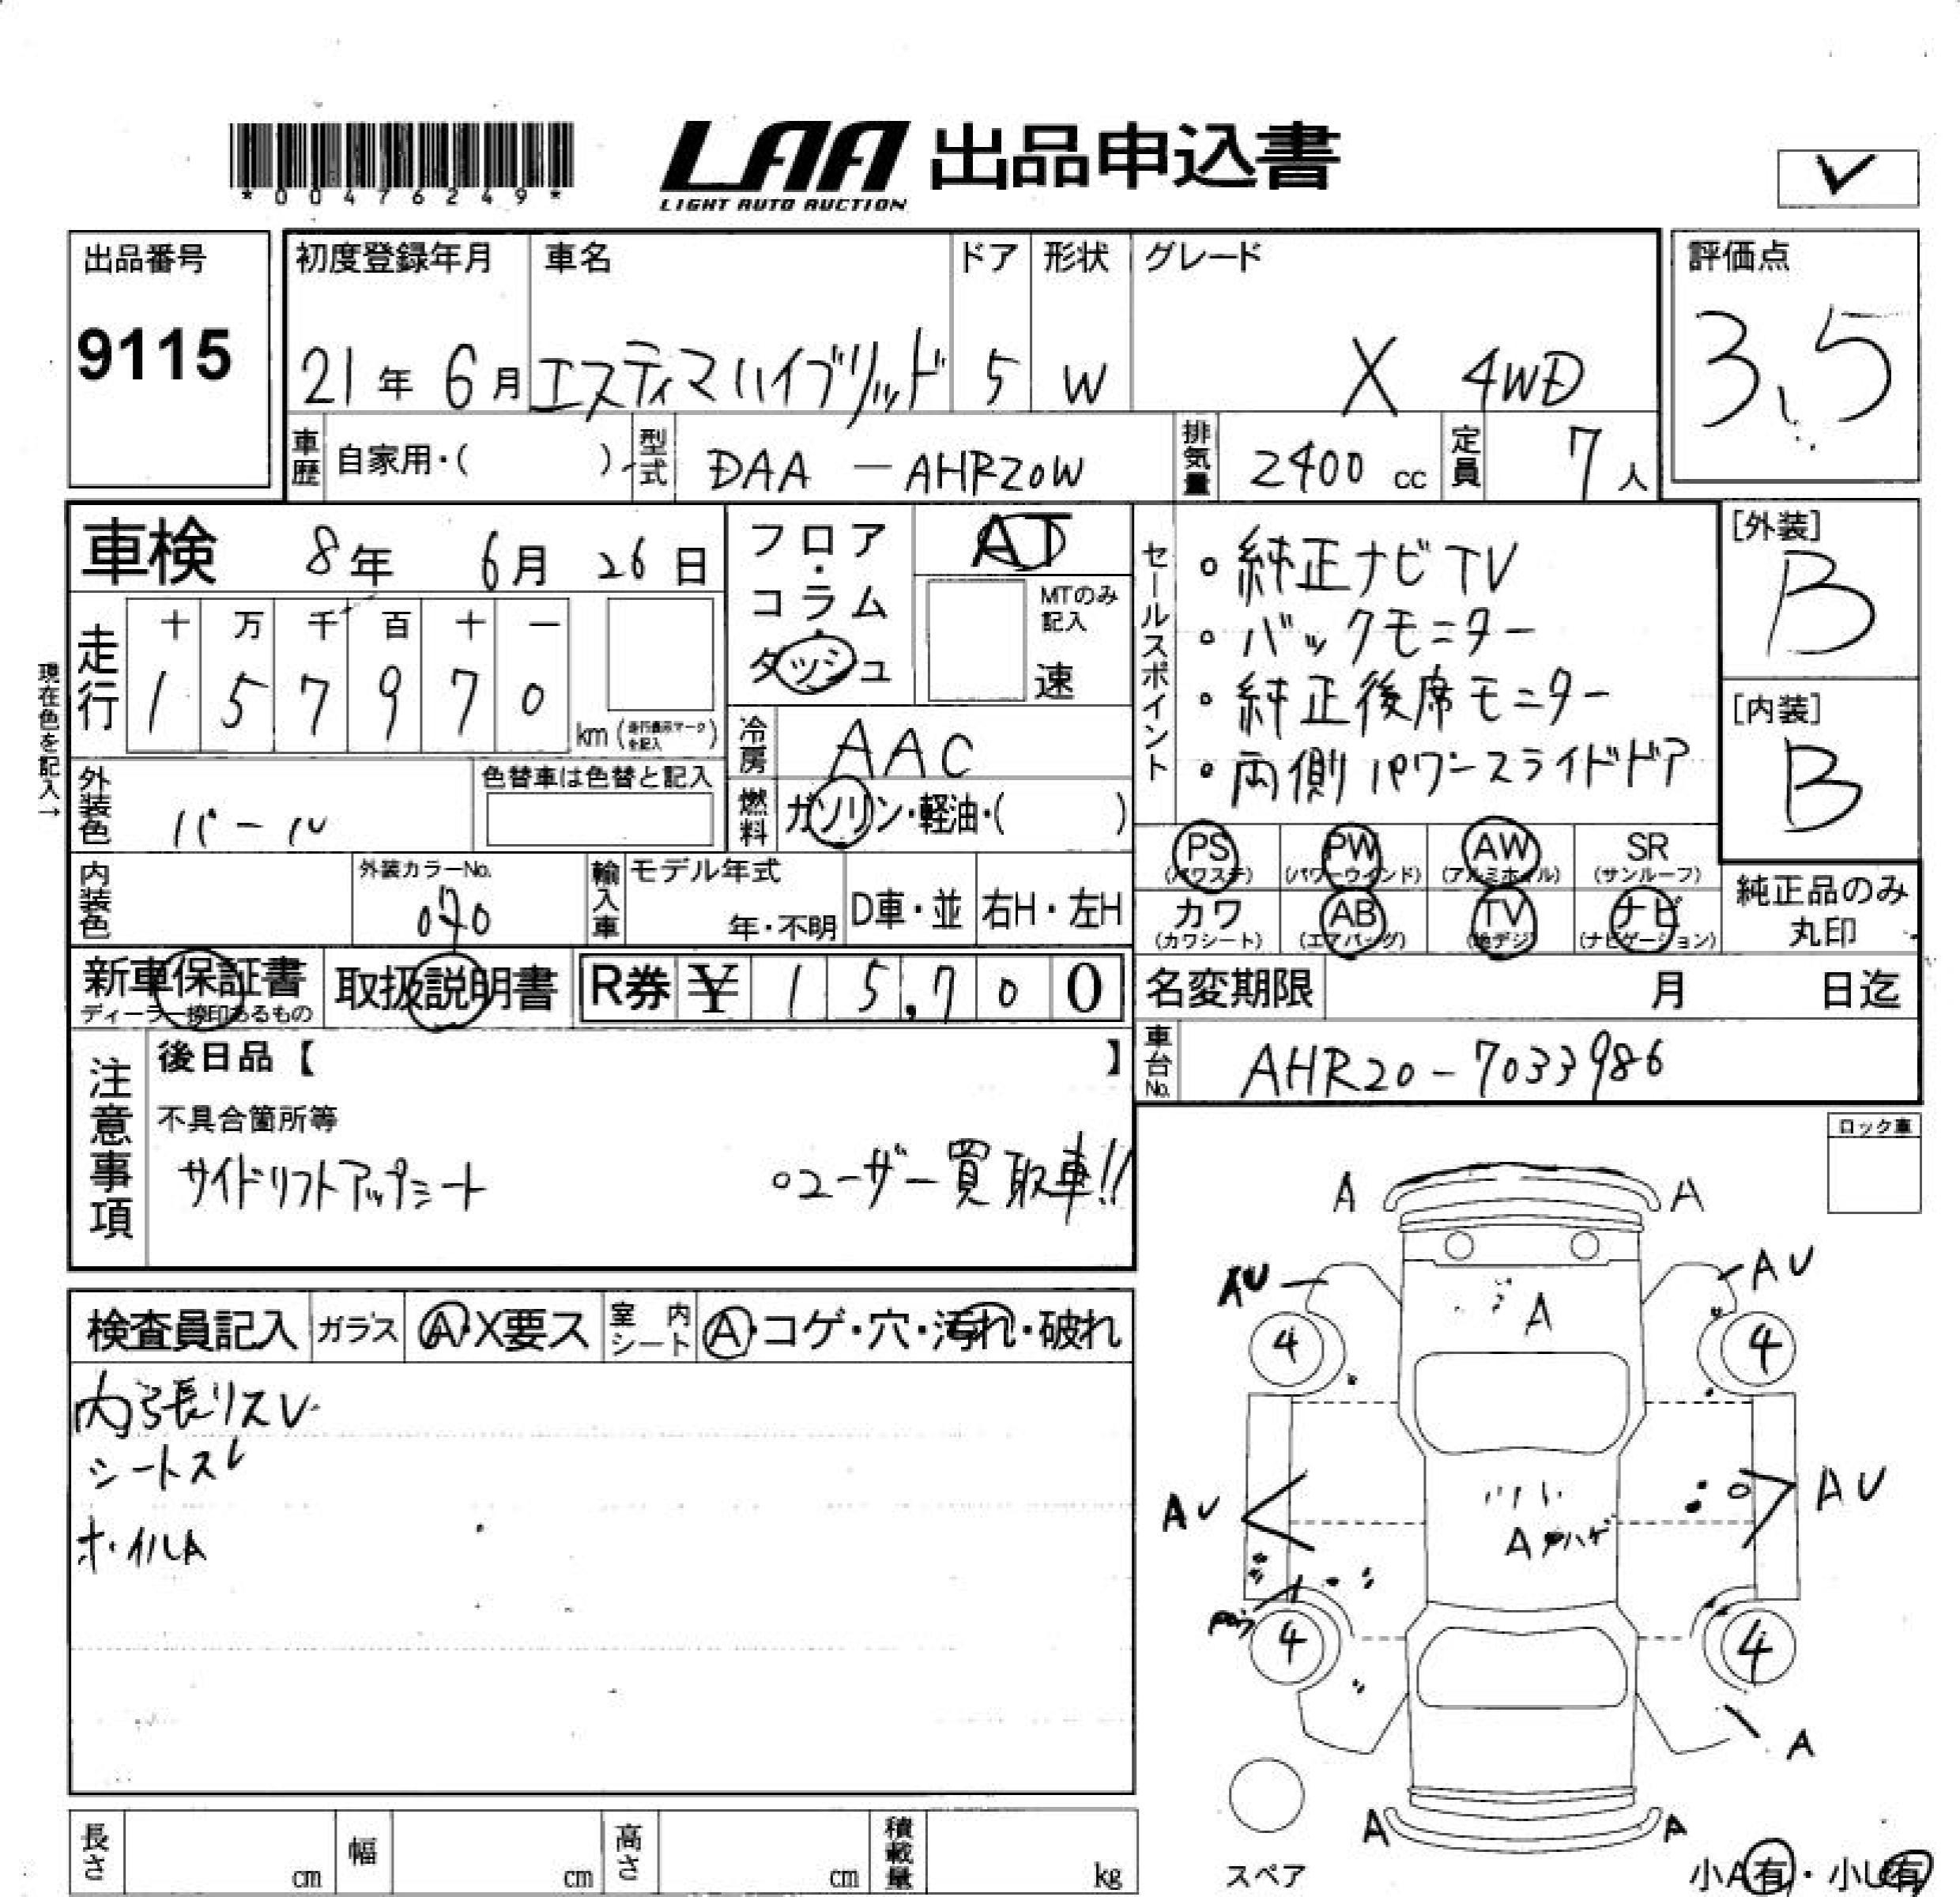 *00476249*
LAA 出品申込書
LIGHT AUTO AUCTION
出品番号
9115
初度登録年月
21年 6月
車名
エスティマハイブリッド
ドア
5
形状
W
グレード
X 4WD
評価点
3.5
車歴
自家用・( )
型式
DAA - AHR20W
排気量
2400 cc
定員
7人
車検 8年 6月 26日
フロア・コラム・ダッシュ
AT
MTのみ記入
速
セールスポイント
・純正ナビTV
・バックモニター
・純正後席モニター
・両側パワースライドドア
[外装]
B
[内装]
B
現在色を記入→
走行
十 万 千 百 十 一
1 5 7 9 7 0
km (走行表示マークを記入)
冷房
AAC
外装色
パール
色替車は色替と記入
燃料
ガソリン・軽油・( )
PS (パワステ)
PW (パワーウインド)
AW (アルミホイル)
SR (サンルーフ)
カワ (カワシート)
AB (エアバッグ)
TV (地デジ)
ナビ (ナビゲーション)
純正品のみ丸印
内装色
外装カラーNo.
070
輸入車
モデル年式
年・不明
D車・並
右H・左H
新車保証書
ディーラー捺印あるもの
取扱説明書
R券 ¥ 1 5,7 0 0
名変期限 月 日迄
車台No.
AHR20-7033986
注意事項
後日品【 】
不具合箇所等
サイドリフトアップシート
○ユーザー買取車!!
ロック車
検査員記入
ガラス
A・X要ス
室内シート
A・コゲ・穴・汚れ・破れ
内張りスレ
シートスレ
ホイルA
A
A
AU
AU
A
4
4
AU
AU
A
ハゲ
4
4
A
A
A
スペア
小A有・小U有
長さ cm
幅 cm
高さ cm
積載量 kg